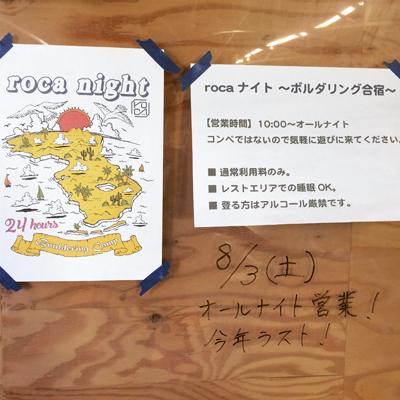 roca night
24 hours
Bouldering Camp
roca ナイト ～ボルダリング合宿～
【営業時間】10:00～オールナイト
コンペではないので気軽に遊びに来てください。
■ 通常利用料のみ。
■ レストエリアでの睡眠 OK。
■ 登る方はアルコール厳禁です。
8/3(土)
オールナイト営業!
今年ラスト!